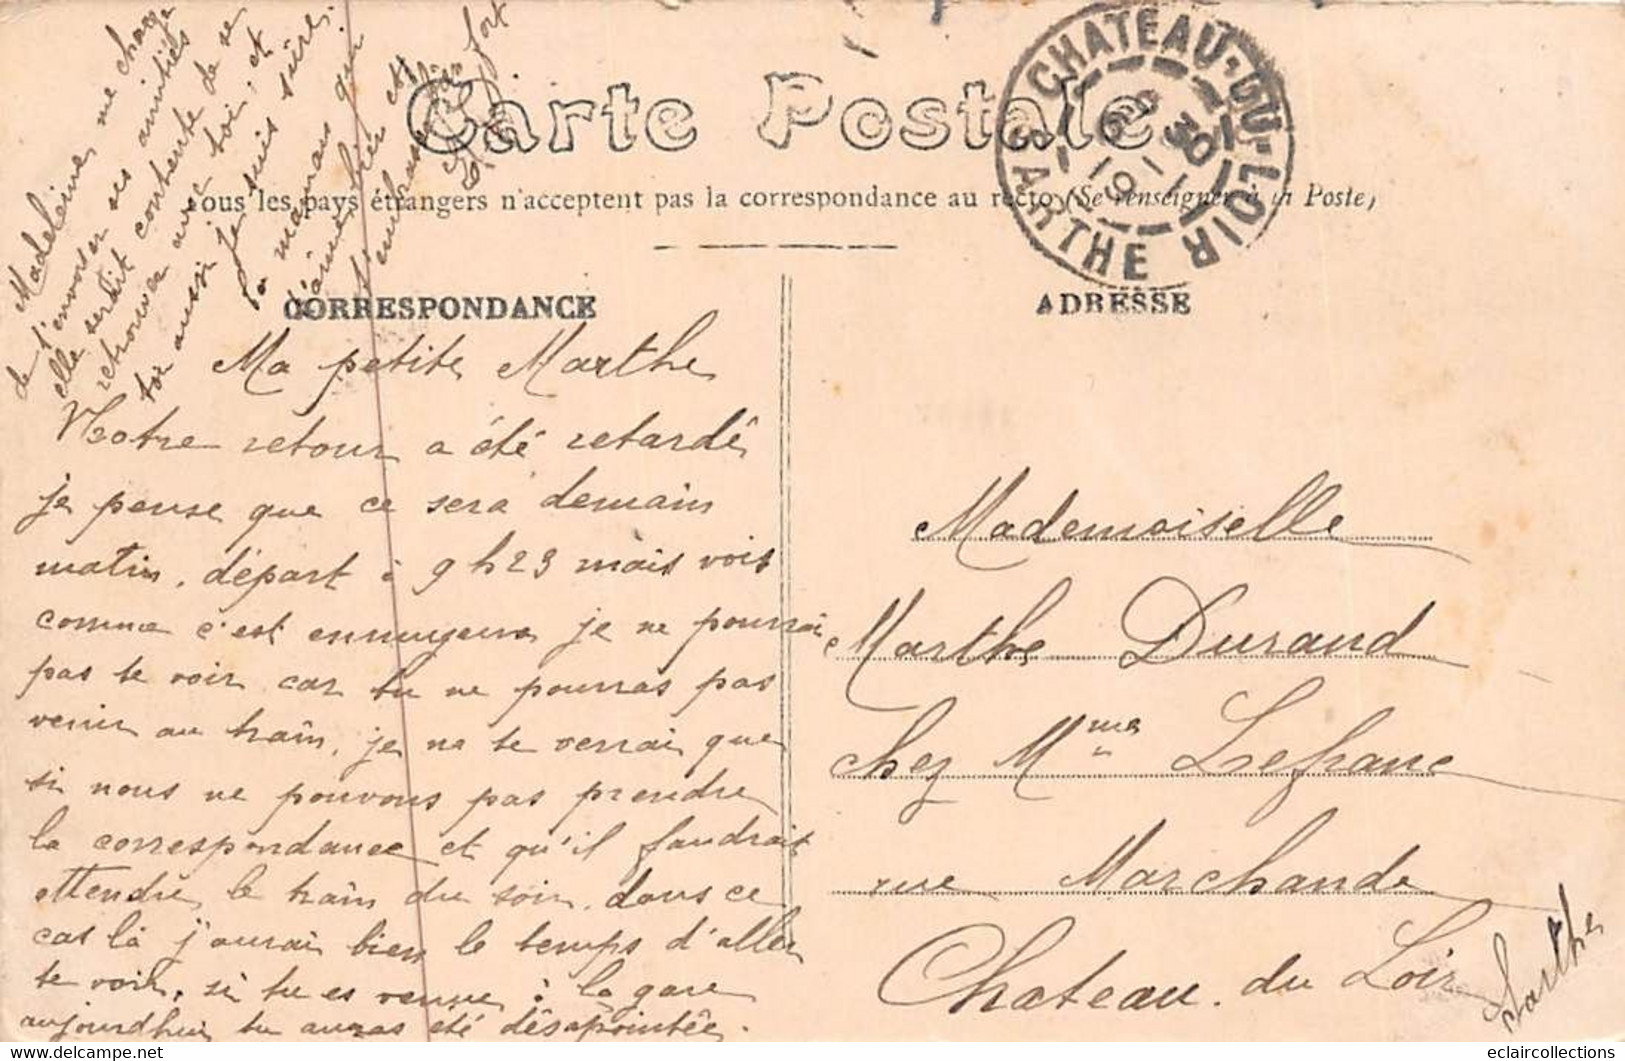 Carte Postale
Tous les pays étrangers n'acceptent pas la correspondance au recto (Se renseigner à la Poste)
CHATEAU-DU-LOIR
SARTHE
30
1911
CORRESPONDANCE
ADRESSE
Ma petite Marthe
Notre retour a été retardé
je pense que ce sera demain
matin, départ à 9h23 mais vois
comme c'est ennuyeux je ne pourrai
pas te voir car tu ne pourras pas
venir au train, je ne te verrai que
si nous ne pouvons pas prendre
la correspondance et qu'il faudrait
attendre le train du soir, dans ce
cas là j'aurai bien le temps d'aller
te voir, si tu es venue à la gare
aujourd'hui tu auras été désapointée.
Madeleine me charge
de t'envoyer ses amitiés
elle serait contente de se
retrouver avec toi, et
toi aussi j'en suis sûre.
Ta maman qui
t'aime bien et
t'embrasse bien
fort
Mademoiselle
Marthe Durand
chez Mme Lefranc
rue Marchande
Chateau. du Loir
Sarthe
eclaircollections
delcampe.net